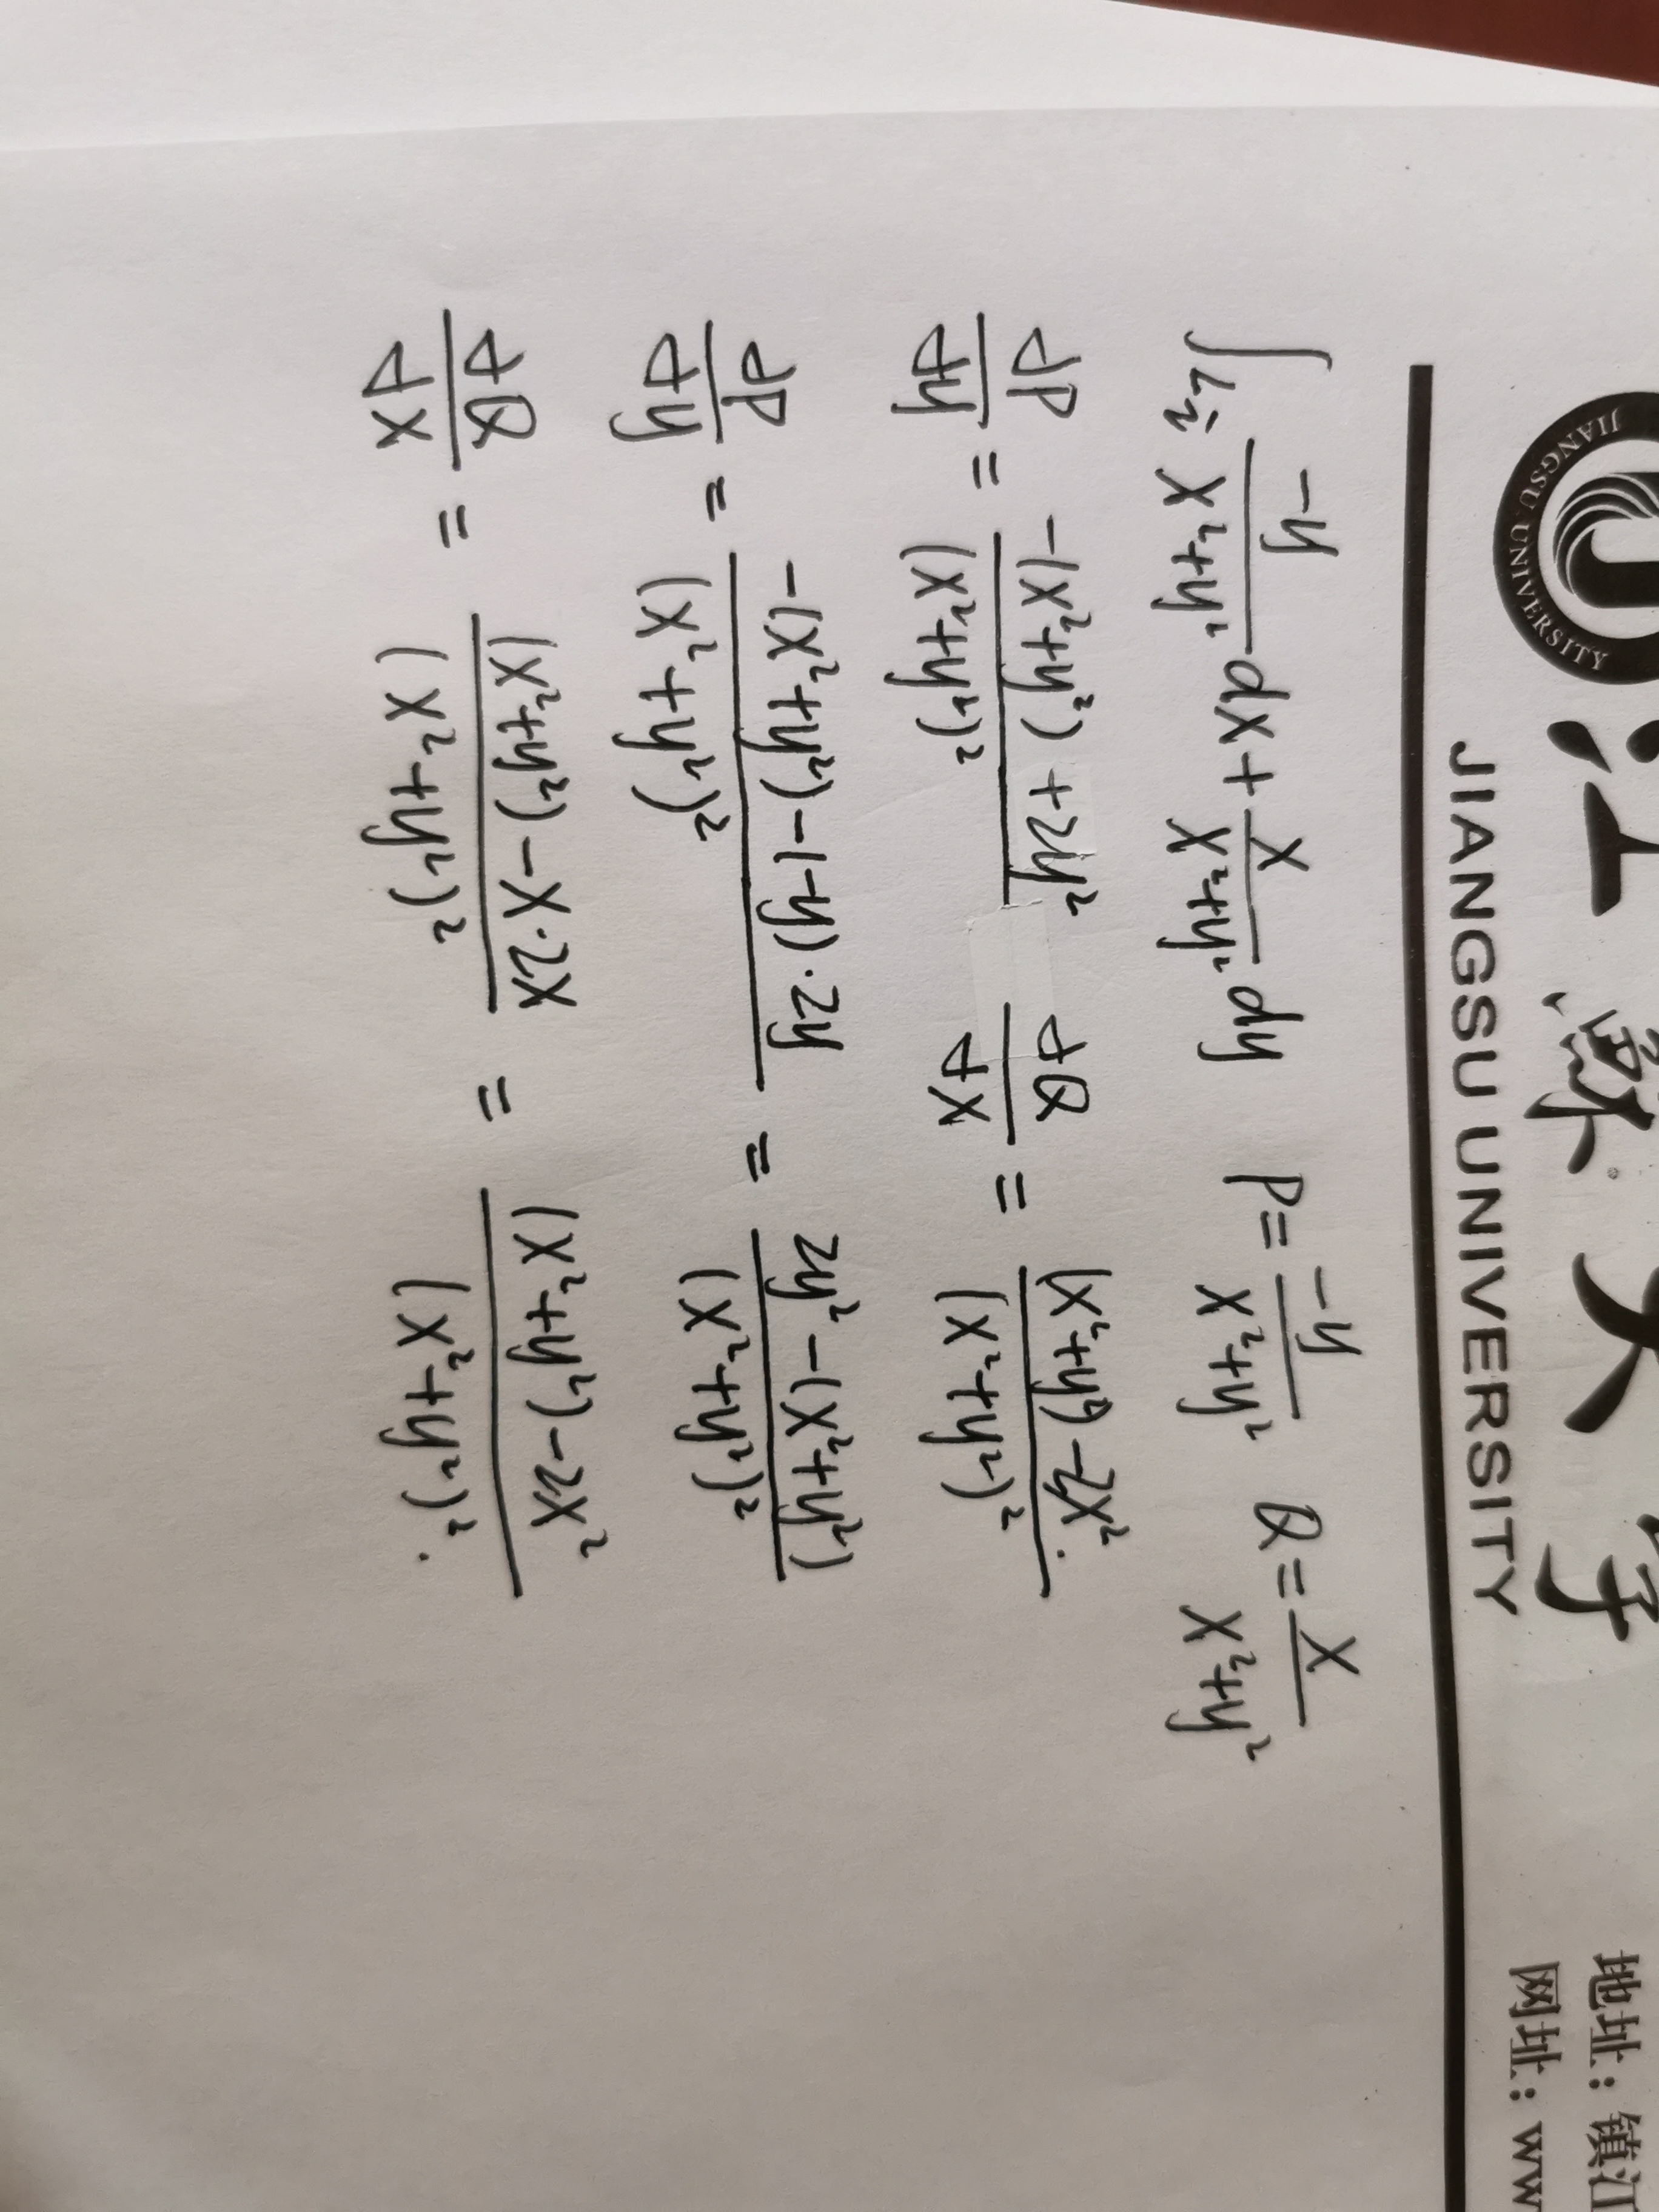 江苏大学
JIANGSU UNIVERSITY
JIANGSU UNIVERSITY
地址：镇江
网址：ww
∫L₂ -y/(x²+y²) dx + x/(x²+y²) dy P = -y/(x²+y²) Q = x/(x²+y²)
∂P/∂y = (-(x²+y²)+2y²)/(x²+y²)² ∂Q/∂x = ((x²+y²)-2x²)/(x²+y²)²
∂P/∂y = (-(x²+y²)-(-y)·2y)/(x²+y²)² = (2y²-(x²+y²))/(x²+y²)²
∂Q/∂x = ((x²+y²)-x·2x)/(x²+y²)² = ((x²+y²)-2x²)/(x²+y²)².